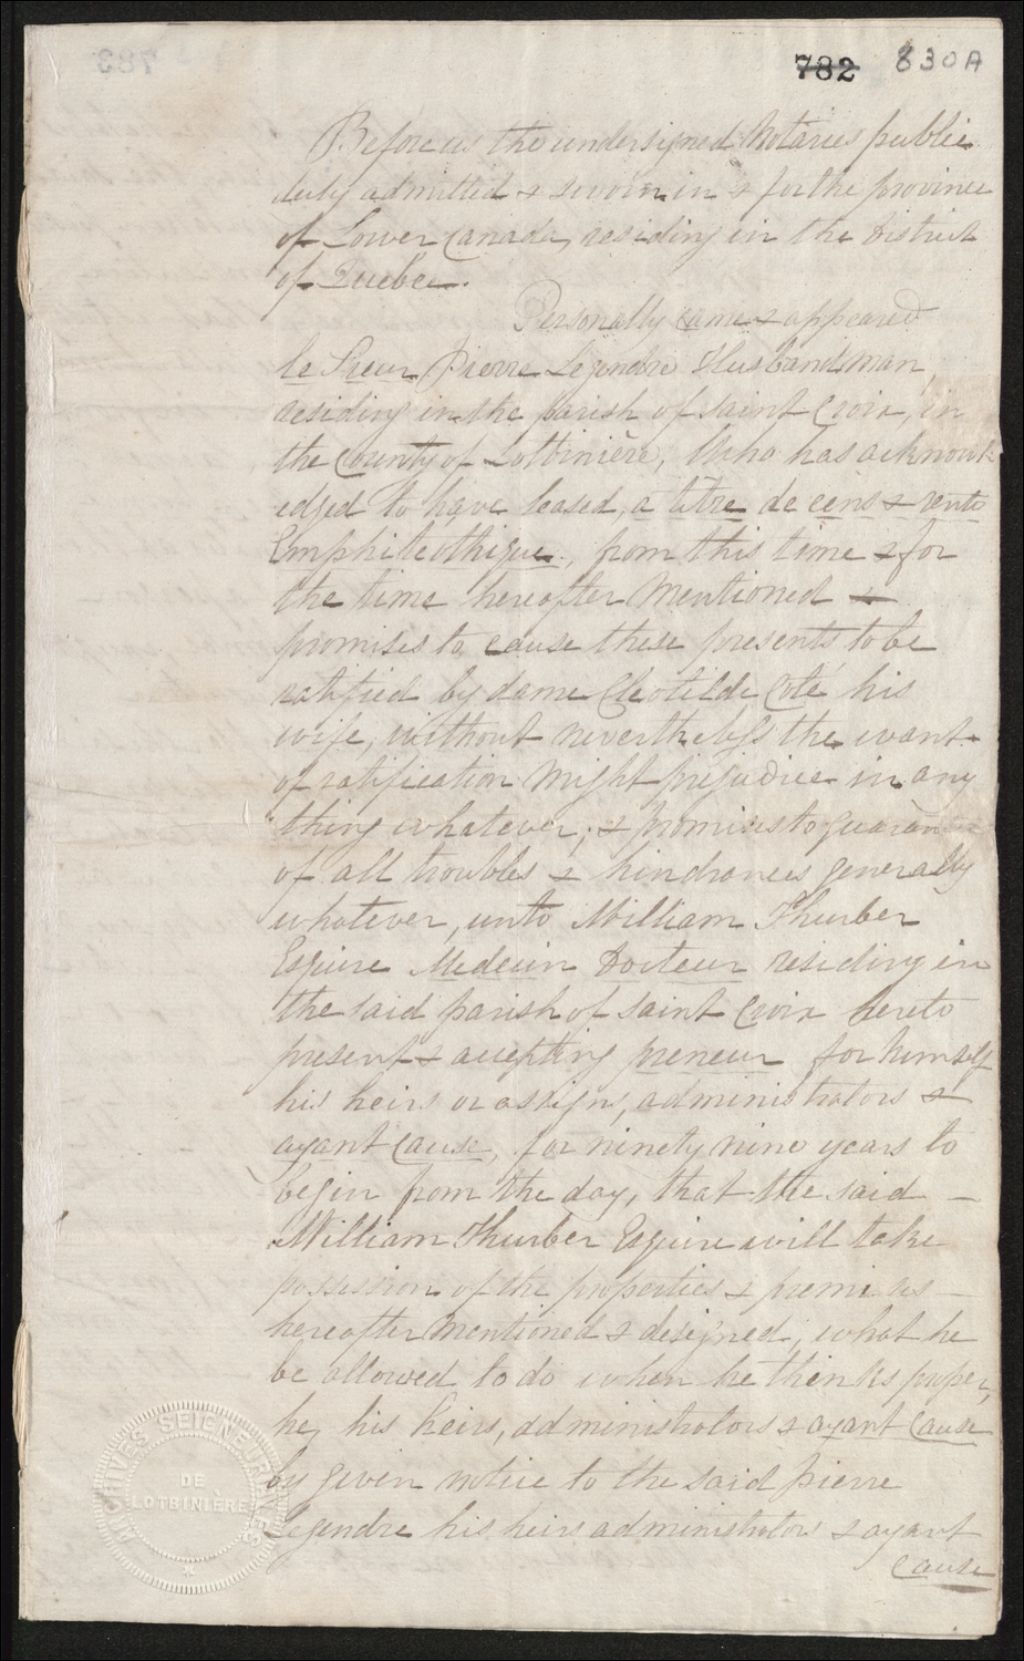 782 830A
Before us the undersigned Notaries public
duly admitted & sworn in & for the province
of Lower Canada, residing in the District
of Quebec.
Personally came & appeared
le Sieur Pierre Legendre Husbandsman,
residing in the parish of saint Croix, in
the County of Lotbinière, Who has acknowl
edged to have leased, a titre de cens & rente
Emphiteothique, from this time & for
the time hereafter Mentioned &
promises to cause these presents to be
ratified by dame Cleotilde Coté his
wife, without nevertheless the want
of ratification Might prejudice in any
thing whatever; & promises to guaran
of all troubles & hindrances generally
whatever, unto William Thurber
Esquire Medecin Docteur residing in
the said parish of saint Croix hereto
present & accepting preneur for himself
his heirs or assigns, administrators &
ayant cause, for ninety nine years to
begin from the day, that the said –
William Thurber Esquire will take
possession of the properties & premises –
hereafter Mentioned & designed; what he
be allowed to do when he thinks proper,
he, his heirs, administrators & ayant Cause
by given notice to the said pierre
Legendre his heirs administrators & ayant
cause
ARCHIVES SEIGNEURIALES
DE
LOTBINIÈRE